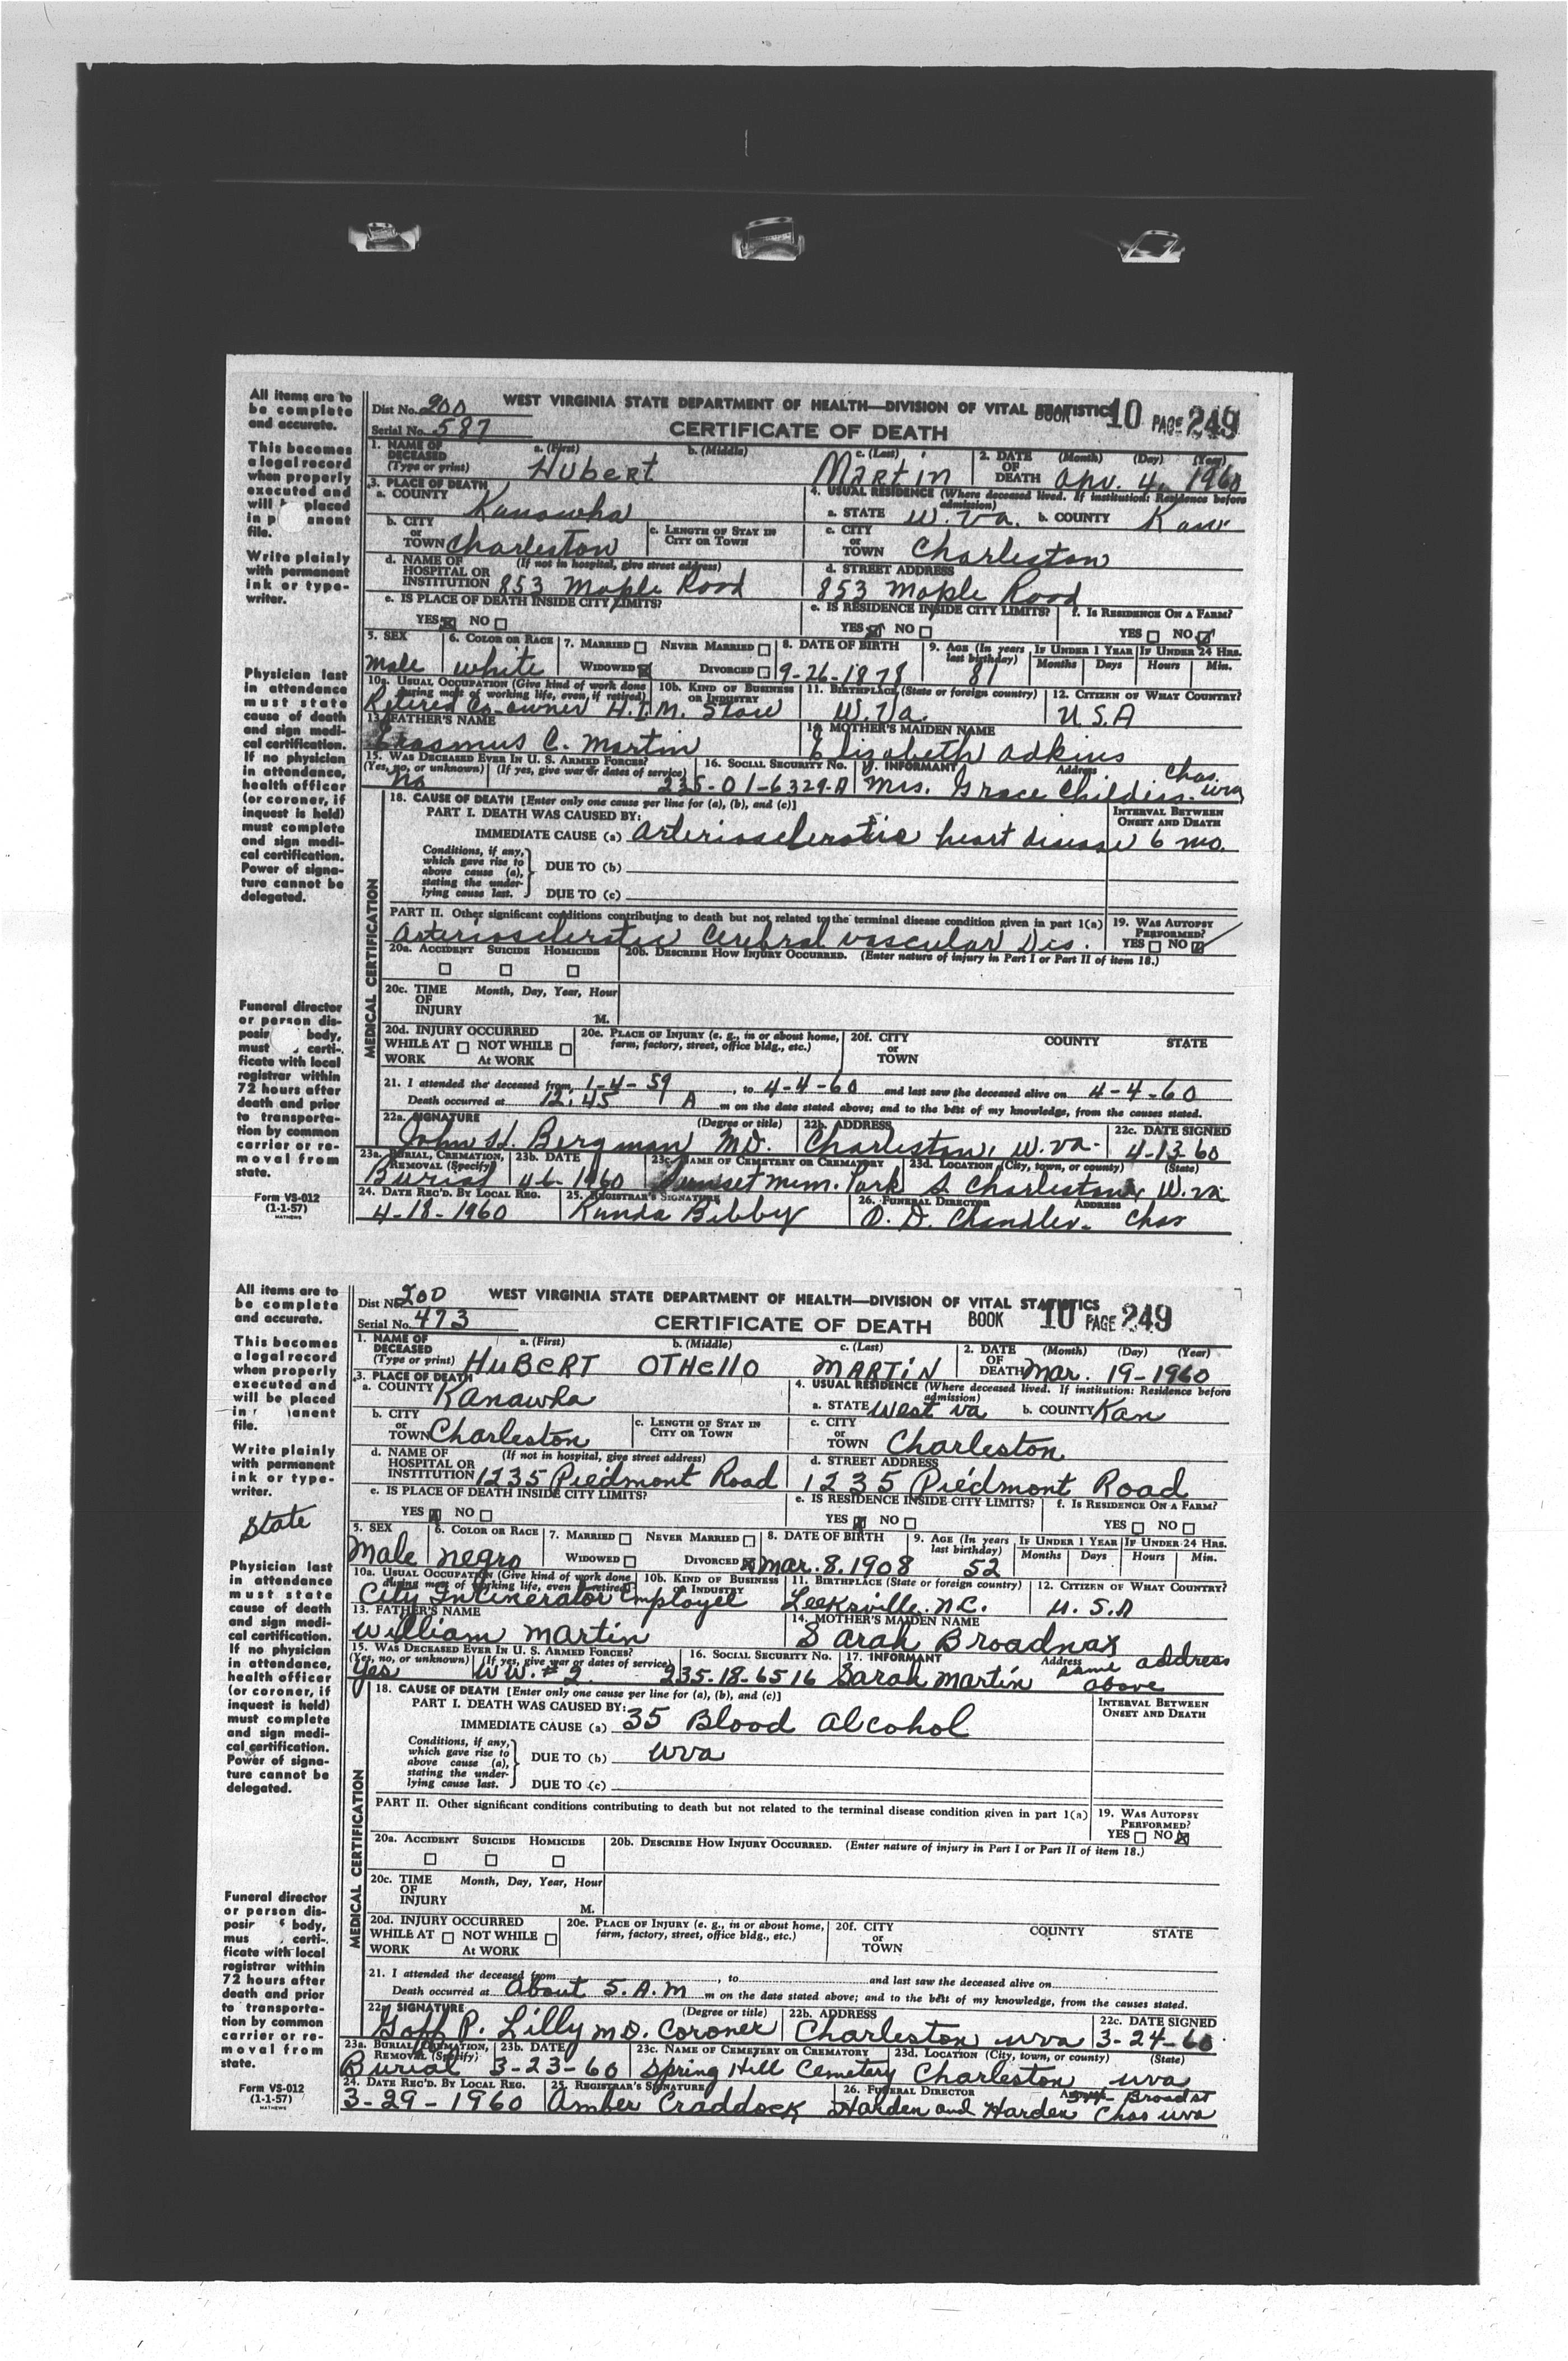 All items are to
be complete
and accurate.
This becomes
a legal record
when properly
executed and
will placed
in p anent
file.
Write plainly
with permanent
ink or type-
writer.
Physician last
in attendance
must state
cause of death
and sign medi-
cal certification.
If no physician
in attendance,
health officer
(or coroner, if
inquest is held)
must complete
and sign medi-
cal certification.
Power of signa-
ture cannot be
delegated.
Funeral director
or person dis-
posir body,
must certi-
ficate with local
registrar within
72 hours after
death and prior
to transporta-
tion by common
carrier or re-
moval from
state.
Form VS-012
(1-1-57)
MATHEWS
Dist No. 200 WEST VIRGINIA STATE DEPARTMENT OF HEALTH—DIVISION OF VITAL STATISTICS BOOK 10 PAGE 249
Serial No. 587 CERTIFICATE OF DEATH
1. NAME OF DECEASED (Type or print) a. (First) Hubert b. (Middle) c. (Last) Martin 2. DATE OF DEATH (Month) (Day) (Year) Apr. 4, 1960
3. PLACE OF DEATH 4. USUAL RESIDENCE (Where deceased lived. If institution: Residence before admission)
a. COUNTY Kanawha a. STATE W. Va. b. COUNTY Kan
b. CITY or TOWN Charleston c. LENGTH OF STAY IN CITY OR TOWN c. CITY or TOWN Charleston
d. NAME OF HOSPITAL OR INSTITUTION (If not in hospital, give street address) 853 Maple Road d. STREET ADDRESS 853 Maple Road
e. IS PLACE OF DEATH INSIDE CITY LIMITS? YES NO e. IS RESIDENCE INSIDE CITY LIMITS? YES NO f. IS RESIDENCE ON A FARM? YES NO
5. SEX Male 6. COLOR OR RACE white 7. MARRIED NEVER MARRIED WIDOWED DIVORCED 8. DATE OF BIRTH 9-26-1878 9. AGE (In years last birthday) 81 IF UNDER 1 YEAR Months Days IF UNDER 24 HRS. Hours Min.
10a. USUAL OCCUPATION (Give kind of work done during most of working life, even if retired) Retired Co-owner 10b. KIND OF BUSINESS OR INDUSTRY 11. BIRTHPLACE (State or foreign country) W. Va. 12. CITIZEN OF WHAT COUNTRY? USA
13. FATHER'S NAME Erasmus C. Martin 14. MOTHER'S MAIDEN NAME Elizabeth Adkins
15. WAS DECEASED EVER IN U. S. ARMED FORCES? (Yes, no, or unknown) (If yes, give war or dates of service) No 16. SOCIAL SECURITY NO. 235-01-6329-A 17. INFORMANT Mrs. Grace Childers Address Chas. wva
MEDICAL CERTIFICATION
18. CAUSE OF DEATH [Enter only one cause per line for (a), (b), and (c)]
PART I. DEATH WAS CAUSED BY: INTERVAL BETWEEN ONSET AND DEATH
IMMEDIATE CAUSE (a) Arteriosclerotic heart disease 6 mo.
Conditions, if any, which gave rise to above cause (a), stating the underlying cause last. DUE TO (b)
DUE TO (c)
PART II. Other significant conditions contributing to death but not related to the terminal disease condition given in part 1(a) 19. WAS AUTOPSY PERFORMED? YES NO
Arteriosclerotic Cerebral vascular Dis.
20a. ACCIDENT SUICIDE HOMICIDE 20b. DESCRIBE HOW INJURY OCCURRED. (Enter nature of injury in Part I or Part II of item 18.)
20c. TIME OF INJURY Month, Day, Year, Hour M.
20d. INJURY OCCURRED WHILE AT WORK NOT WHILE AT WORK 20e. PLACE OF INJURY (e. g., in or about home, farm, factory, street, office bldg., etc.) 20f. CITY or TOWN COUNTY STATE
21. I attended the deceased from 1-4-59, to 4-4-60 and last saw the deceased alive on 4-4-60
Death occurred at 12:45 A m on the date stated above; and to the best of my knowledge, from the causes stated.
22a. SIGNATURE (Degree or title) John H. Bergman MD. 22b. ADDRESS Charleston, W. Va. 22c. DATE SIGNED 4-13-60
23a. BURIAL, CREMATION, REMOVAL (Specify) Burial 23b. DATE 4-6-1960 23c. NAME OF CEMETERY OR CREMATORY Sunset Mem. Park 23d. LOCATION (City, town, or county) (State) S. Charleston, W. Va.
24. DATE REC'D. BY LOCAL REG. 4-18-1960 25. REGISTRAR'S SIGNATURE Bibby 26. FUNERAL DIRECTOR ADDRESS O. D. Chandler- Chas
All items are to
be complete
and accurate.
This becomes
a legal record
when properly
executed and
will be placed
in anent
file.
Write plainly
with permanent
ink or type-
writer.
State
Physician last
in attendance
must state
cause of death
and sign medi-
cal certification.
If no physician
in attendance,
health officer
(or coroner, if
inquest is held)
must complete
and sign medi-
cal certification.
Power of signa-
ture cannot be
delegated.
Funeral director
or person dis-
posir f body,
mus certi-
ficate with local
registrar within
72 hours after
death and prior
to transporta-
tion by common
carrier or re-
moval from
state.
Form VS-012
(1-1-57)
MATHEWS
Dist No. 200 WEST VIRGINIA STATE DEPARTMENT OF HEALTH—DIVISION OF VITAL STATISTICS
Serial No. 473 CERTIFICATE OF DEATH BOOK 10 PAGE 249
1. NAME OF DECEASED (Type or print) a. (First) HUBERT b. (Middle) OTHELLO c. (Last) MARTIN 2. DATE OF DEATH (Month) (Day) (Year) Mar. 19-1960
3. PLACE OF DEATH 4. USUAL RESIDENCE (Where deceased lived. If institution: Residence before admission)
a. COUNTY Kanawha a. STATE West Va b. COUNTY Kan
b. CITY or TOWN Charleston c. LENGTH OF STAY IN CITY OR TOWN c. CITY or TOWN Charleston
d. NAME OF HOSPITAL OR INSTITUTION (If not in hospital, give street address) 1235 Piedmont Road d. STREET ADDRESS 1235 Piedmont Road
e. IS PLACE OF DEATH INSIDE CITY LIMITS? YES NO e. IS RESIDENCE INSIDE CITY LIMITS? YES NO f. IS RESIDENCE ON A FARM? YES NO
5. SEX Male 6. COLOR OR RACE negro 7. MARRIED NEVER MARRIED WIDOWED DIVORCED 8. DATE OF BIRTH Mar. 8. 1908 9. AGE (In years last birthday) 52 IF UNDER 1 YEAR Months Days IF UNDER 24 HRS. Hours Min.
10a. USUAL OCCUPATION (Give kind of work done during most of working life, even if retired) 10b. KIND OF BUSINESS OR INDUSTRY City Incinerator Employee 11. BIRTHPLACE (State or foreign country) Leeksville. N.C. 12. CITIZEN OF WHAT COUNTRY? U. S. A
13. FATHER'S NAME William Martin 14. MOTHER'S MAIDEN NAME Sarah Broadnax
15. WAS DECEASED EVER IN U. S. ARMED FORCES? (Yes, no, or unknown) (If yes, give war or dates of service) Yes W.W. #2 16. SOCIAL SECURITY NO. 235-18-6516 17. INFORMANT Sarah Martin Address same address above
MEDICAL CERTIFICATION
18. CAUSE OF DEATH [Enter only one cause per line for (a), (b), and (c)]
PART I. DEATH WAS CAUSED BY: INTERVAL BETWEEN ONSET AND DEATH
IMMEDIATE CAUSE (a) 35 Blood Alcohol
Conditions, if any, which gave rise to above cause (a), stating the underlying cause last. DUE TO (b) wva
DUE TO (c)
PART II. Other significant conditions contributing to death but not related to the terminal disease condition given in part 1(a) 19. WAS AUTOPSY PERFORMED? YES NO
20a. ACCIDENT SUICIDE HOMICIDE 20b. DESCRIBE HOW INJURY OCCURRED. (Enter nature of injury in Part I or Part II of item 18.)
20c. TIME OF INJURY Month, Day, Year, Hour M.
20d. INJURY OCCURRED WHILE AT WORK NOT WHILE AT WORK 20e. PLACE OF INJURY (e. g., in or about home, farm, factory, street, office bldg., etc.) 20f. CITY or TOWN COUNTY STATE
21. I attended the deceased from , to and last saw the deceased alive on
Death occurred at About 5. A.M m on the date stated above; and to the best of my knowledge, from the causes stated.
22a. SIGNATURE (Degree or title) Goff P. Lilly MD. Coroner 22b. ADDRESS Charleston wva 22c. DATE SIGNED 3-24-60
23a. BURIAL, CREMATION, REMOVAL (Specify) Burial 23b. DATE 3-23-60 23c. NAME OF CEMETERY OR CREMATORY Spring Hill Cemetery 23d. LOCATION (City, town, or county) (State) Charleston wva
24. DATE REC'D. BY LOCAL REG. 3-29-1960 25. REGISTRAR'S SIGNATURE Amber Craddock 26. FUNERAL DIRECTOR Harden and Harden Broad st Chas wva